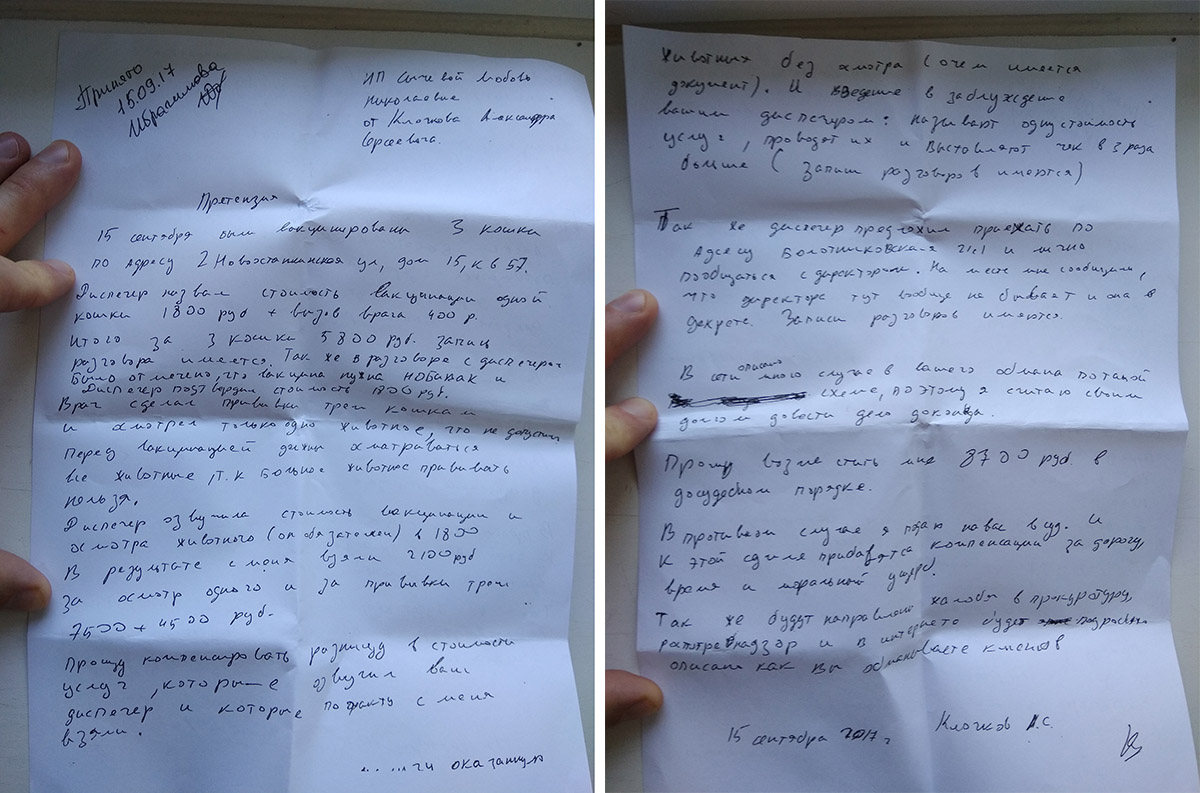 Принято
15.09.17
Ибрагимова
ИП Сычевой Любовь
Николаевне
от Клочкова Александра
Сергеевича.
Претензия
15 сентября были вакцинированы 3 кошки
по адресу 2 Новоостанкинская ул, дом 15, кв 57.
Диспечер назвал стоимость вакцинации одной
кошки 1800 руб + вызов врача 400 р.
Итого за 3 кошки 5800 руб. запись
разговора имеется. Так же в разговоре с диспечером
было отмечено, что вакцина нужна НОБИВАК и
Диспечер подтвердил стоимость 1800 руб.
Врач сделал прививки трем кошкам
и осмотрел только одно животное, что не допустимо
Перед вакцинацией должны осматриваться
все животные, т.к больное животное прививать
нельзя.
Диспечер озвучила стоимость вакцинации и
осмотра животного (он обязателен) в 1800
В результате с меня взяли 2100 руб
За осмотр одного и за прививки троим
7500 + 4500 руб.
Прошу компенсировать разницу в стоимости
услуг, которые озвучил ваш
диспечер и которые по факту с меня
взяли.
оказанную
животных без осмотра (о чем имеется
документ). И введение в заблуждение
вашим диспечером: называют одну стоимость
услуг, проводят их и выставляют чек в 3 раза
больше (Записи разговоров имеются)
Так же диспечер предложил приехать по
адресу Болотниковская 21с1 и лично
пообщаться с директором. На месте мне сообщили,
что директора тут вообще не бывает и она в
декрете. Записи разговоров имеются.
В сети описано много случаев вашего обмана по такой
схеме, поэтому я считаю своим
долгом довести дело до конца.
Прошу возместить мне 8700 руб. в
досудебном порядке.
В противном случае я подаю на вас в суд. И
к этой сумме прибавятся компенсации за дорогу,
время и моральный ущерб.
Так же будут направлены жалобы в прокуратуру,
роспотребнадзор и в интернете будет подробно
описано как вы обманываете клиентов
15 сентября 2017 г Клочков А.С.